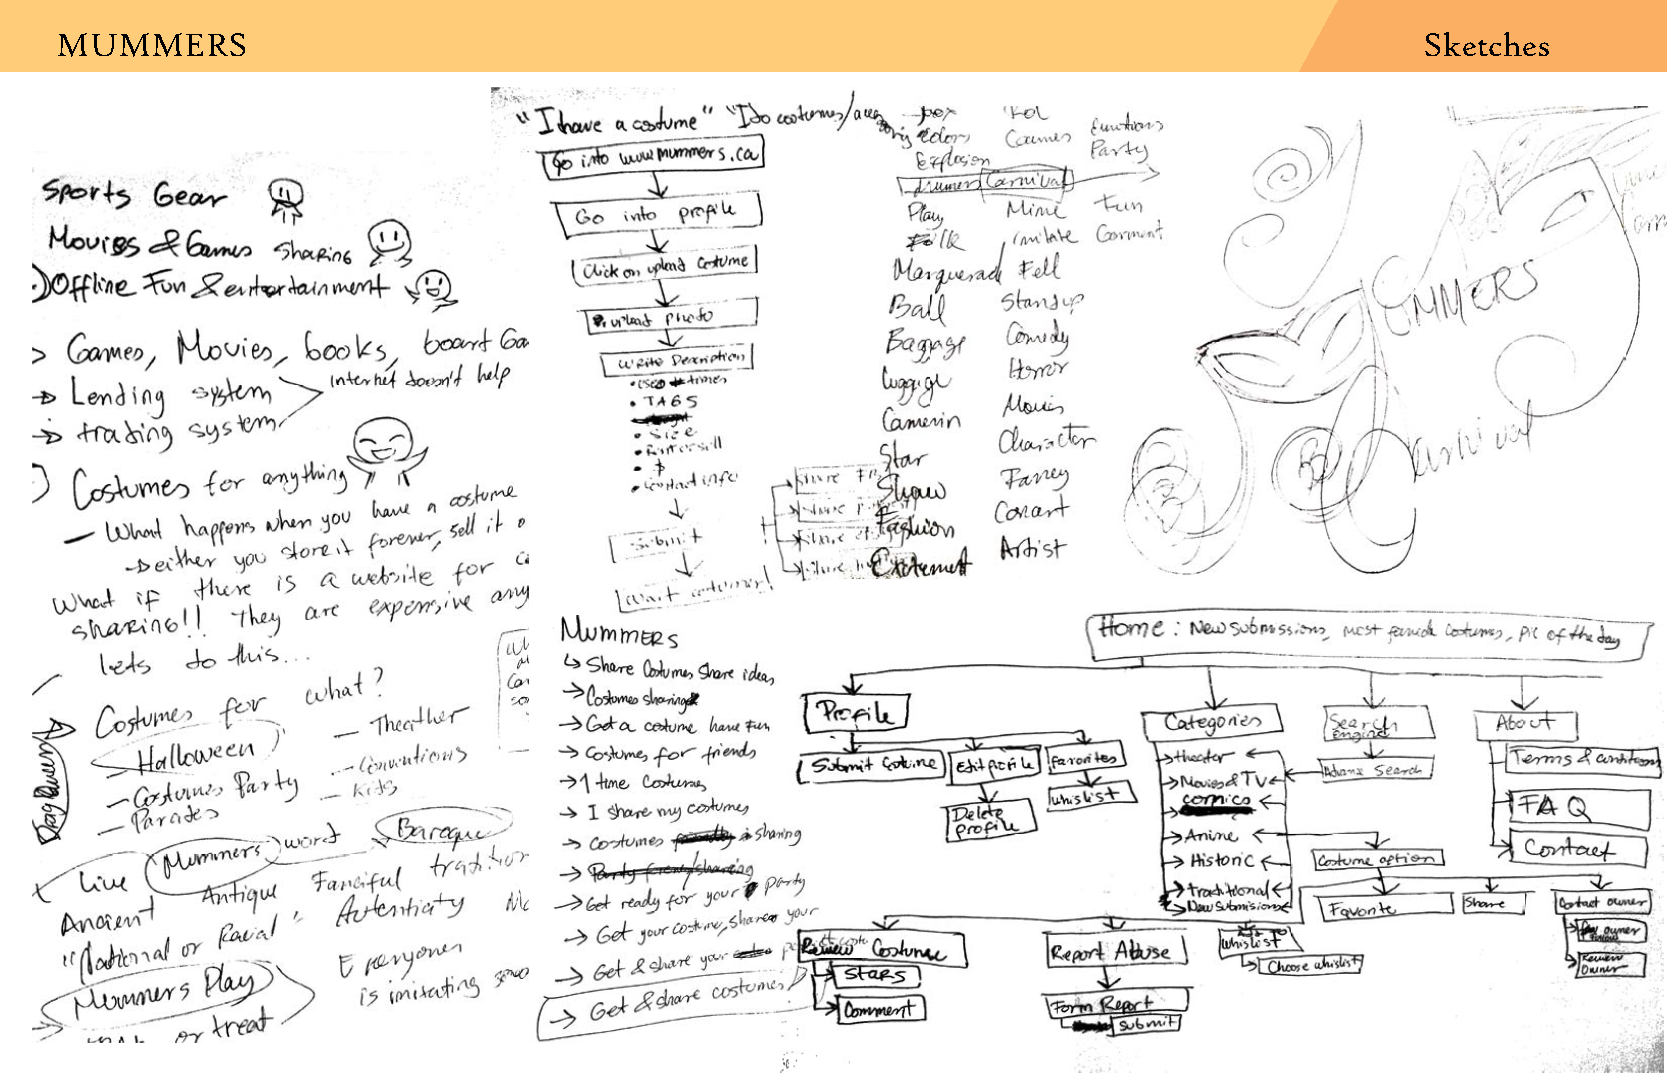 MUMMERS
Sketches
Sports Gear
Movies & Games sharing
Offline Fun & entertainment
> Games, Movies, books, board Ga
→ Lending system
Internet doesn't help
→ trading system
Costumes for anything
– What happens when you have a costume
→ either you store it forever, sell it o
What if there is a website for c
sharing!! They are expensive any
lets do this...
Costumes for what?
– Halloween
– Costumes Party
– Parades
– Theather
– Conventions
– Kids
Drag Queens
Live Mummers word Baroque
Ancient Antique Fanciful tradition
"National or Racial" Autenticity
Mummers Play
or treat
Everyones
is imitating
"I have a costume"
Go into www.mummers.ca
Go into profile
Click on upload Costume
upload photo
Write Description
• used # times
• TAGS
• Size
• Rent or sell
• $
• contact info
Submit
Wait costumer!
"I do costumes/
Colors
Explosion
drumers Carnival
Play
Folk
Marquerade
Ball
Baggage
Luggige
Camerin
Star
Show
Fashion
Excitement
Games
Mime
imitate
Fell
Standup
Comedy
Horror
Movies
Character
Fancy
Concert
Artist
Functions
Party
Fun
Garment
MUMMERS
Carnival
Mummers
↳ Share Costumes Share ideas
→ Costumes sharing
→ Get a costume have fun
→ Costumes for friends
→ 1 time Costumes
→ I share my costumes
→ Costumes sharing
→ Party frenzy/sharing
→ Get ready for your party
→ Get your costume, share your
→ Get & share your
→ Get & share costumes
Home: New submissions, most favorite costumes, pic of the day
Profile
Submit Costume
Edit profile
Delete profile
favorites
Whislist
Categories
→ theater
→ Movies & TV
comics
→ Anime
→ Historic
→ traditional
→ New Submisions
Search Engine
Advanx Search
About
Terms & conditions
FAQ
Contact
Costume option
Favorite
Share
Contact owner
owner
Review Owner
Review Costume
Stars
Comment
Report Abuse
Form Report
submit
Whislist
Choose whislist